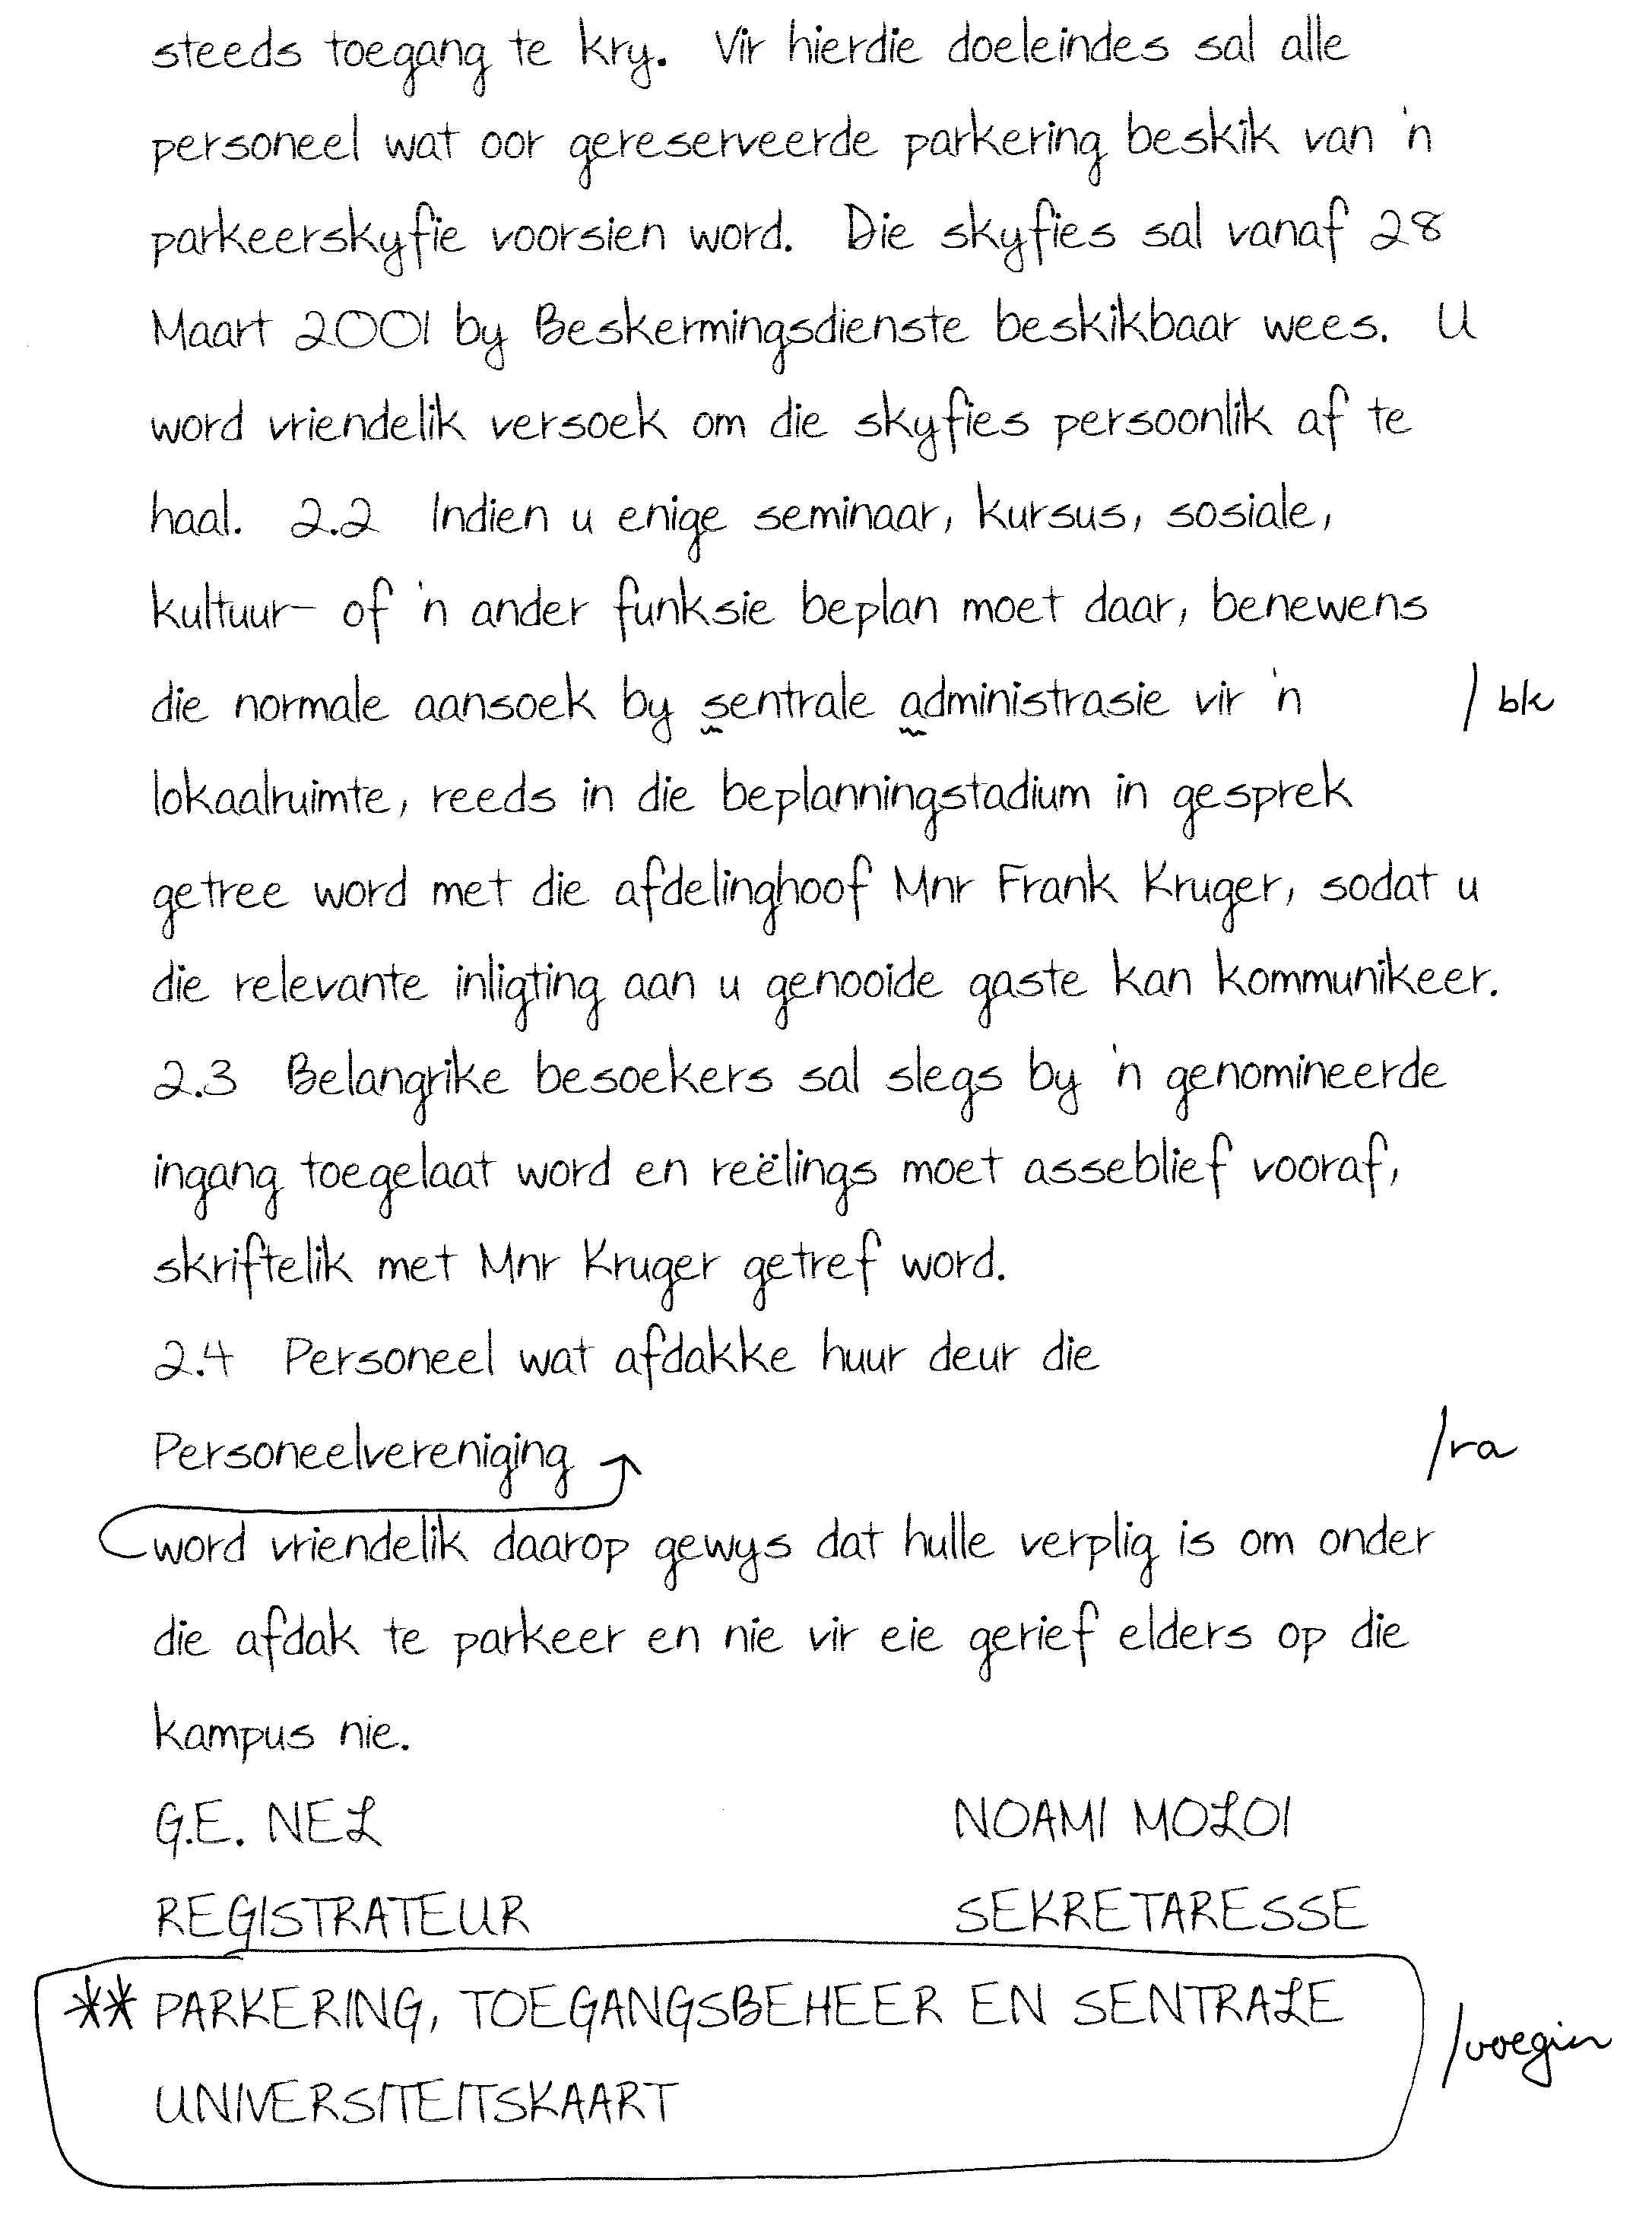 steeds toegang te kry. Vir hierdie doeleindes sal alle
personeel wat oor gereserveerde parkering beskik van 'n
parkeerskyfie voorsien word. Die skyfies sal vanaf 28
Maart 2001 by Beskermingsdienste beskikbaar wees. U
word vriendelik versoek om die skyfies persoonlik af te
haal. 2.2 Indien u enige seminaar, kursus, sosiale,
kultuur- of 'n ander funksie beplan moet daar, benewens
die normale aansoek by sentrale administrasie vir 'n / bk
lokaalruimte, reeds in die beplanningstadium in gesprek
getree word met die afdelinghoof Mnr Frank Kruger, sodat u
die relevante inligting aan u genooide gaste kan kommunikeer.
2.3 Belangrike besoekers sal slegs by 'n genomineerde
ingang toegelaat word en reëlings moet asseblief vooraf,
skriftelik met Mnr Kruger getref word.
2.4 Personeel wat afdakke huur deur die
Personeelvereniging /ra
word vriendelik daarop gewys dat hulle verplig is om onder
die afdak te parkeer en nie vir eie gerief elders op die
kampus nie.
G.E. NEL NOAMI MOLOI
REGISTRATEUR SEKRETARESSE
** PARKERING, TOEGANGSBEHEER EN SENTRALE /voegin
UNIVERSITEITSKAART